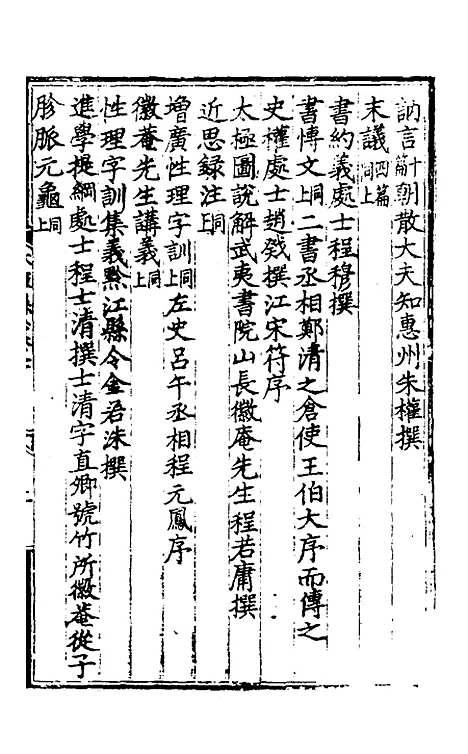 訥言十篇朝散大夫知惠州朱權撰
末議四篇同上
書約義處士程穆撰
書傳文同上二書丞相鄭清之倉使王伯大序而傳之
史權處士趙戣撰江宋符序
太極圖說解武夷書院山長徽庵先生程若庸撰
近思録注同上
增廣性理字訓同上左史呂午丞相程元鳳序
徽菴先生講義同上
性理字訓集義黟江縣令金若洙撰
進學提綱處士程士清撰士清字直卿號竹所徽菴從子
胗脈元龜同上